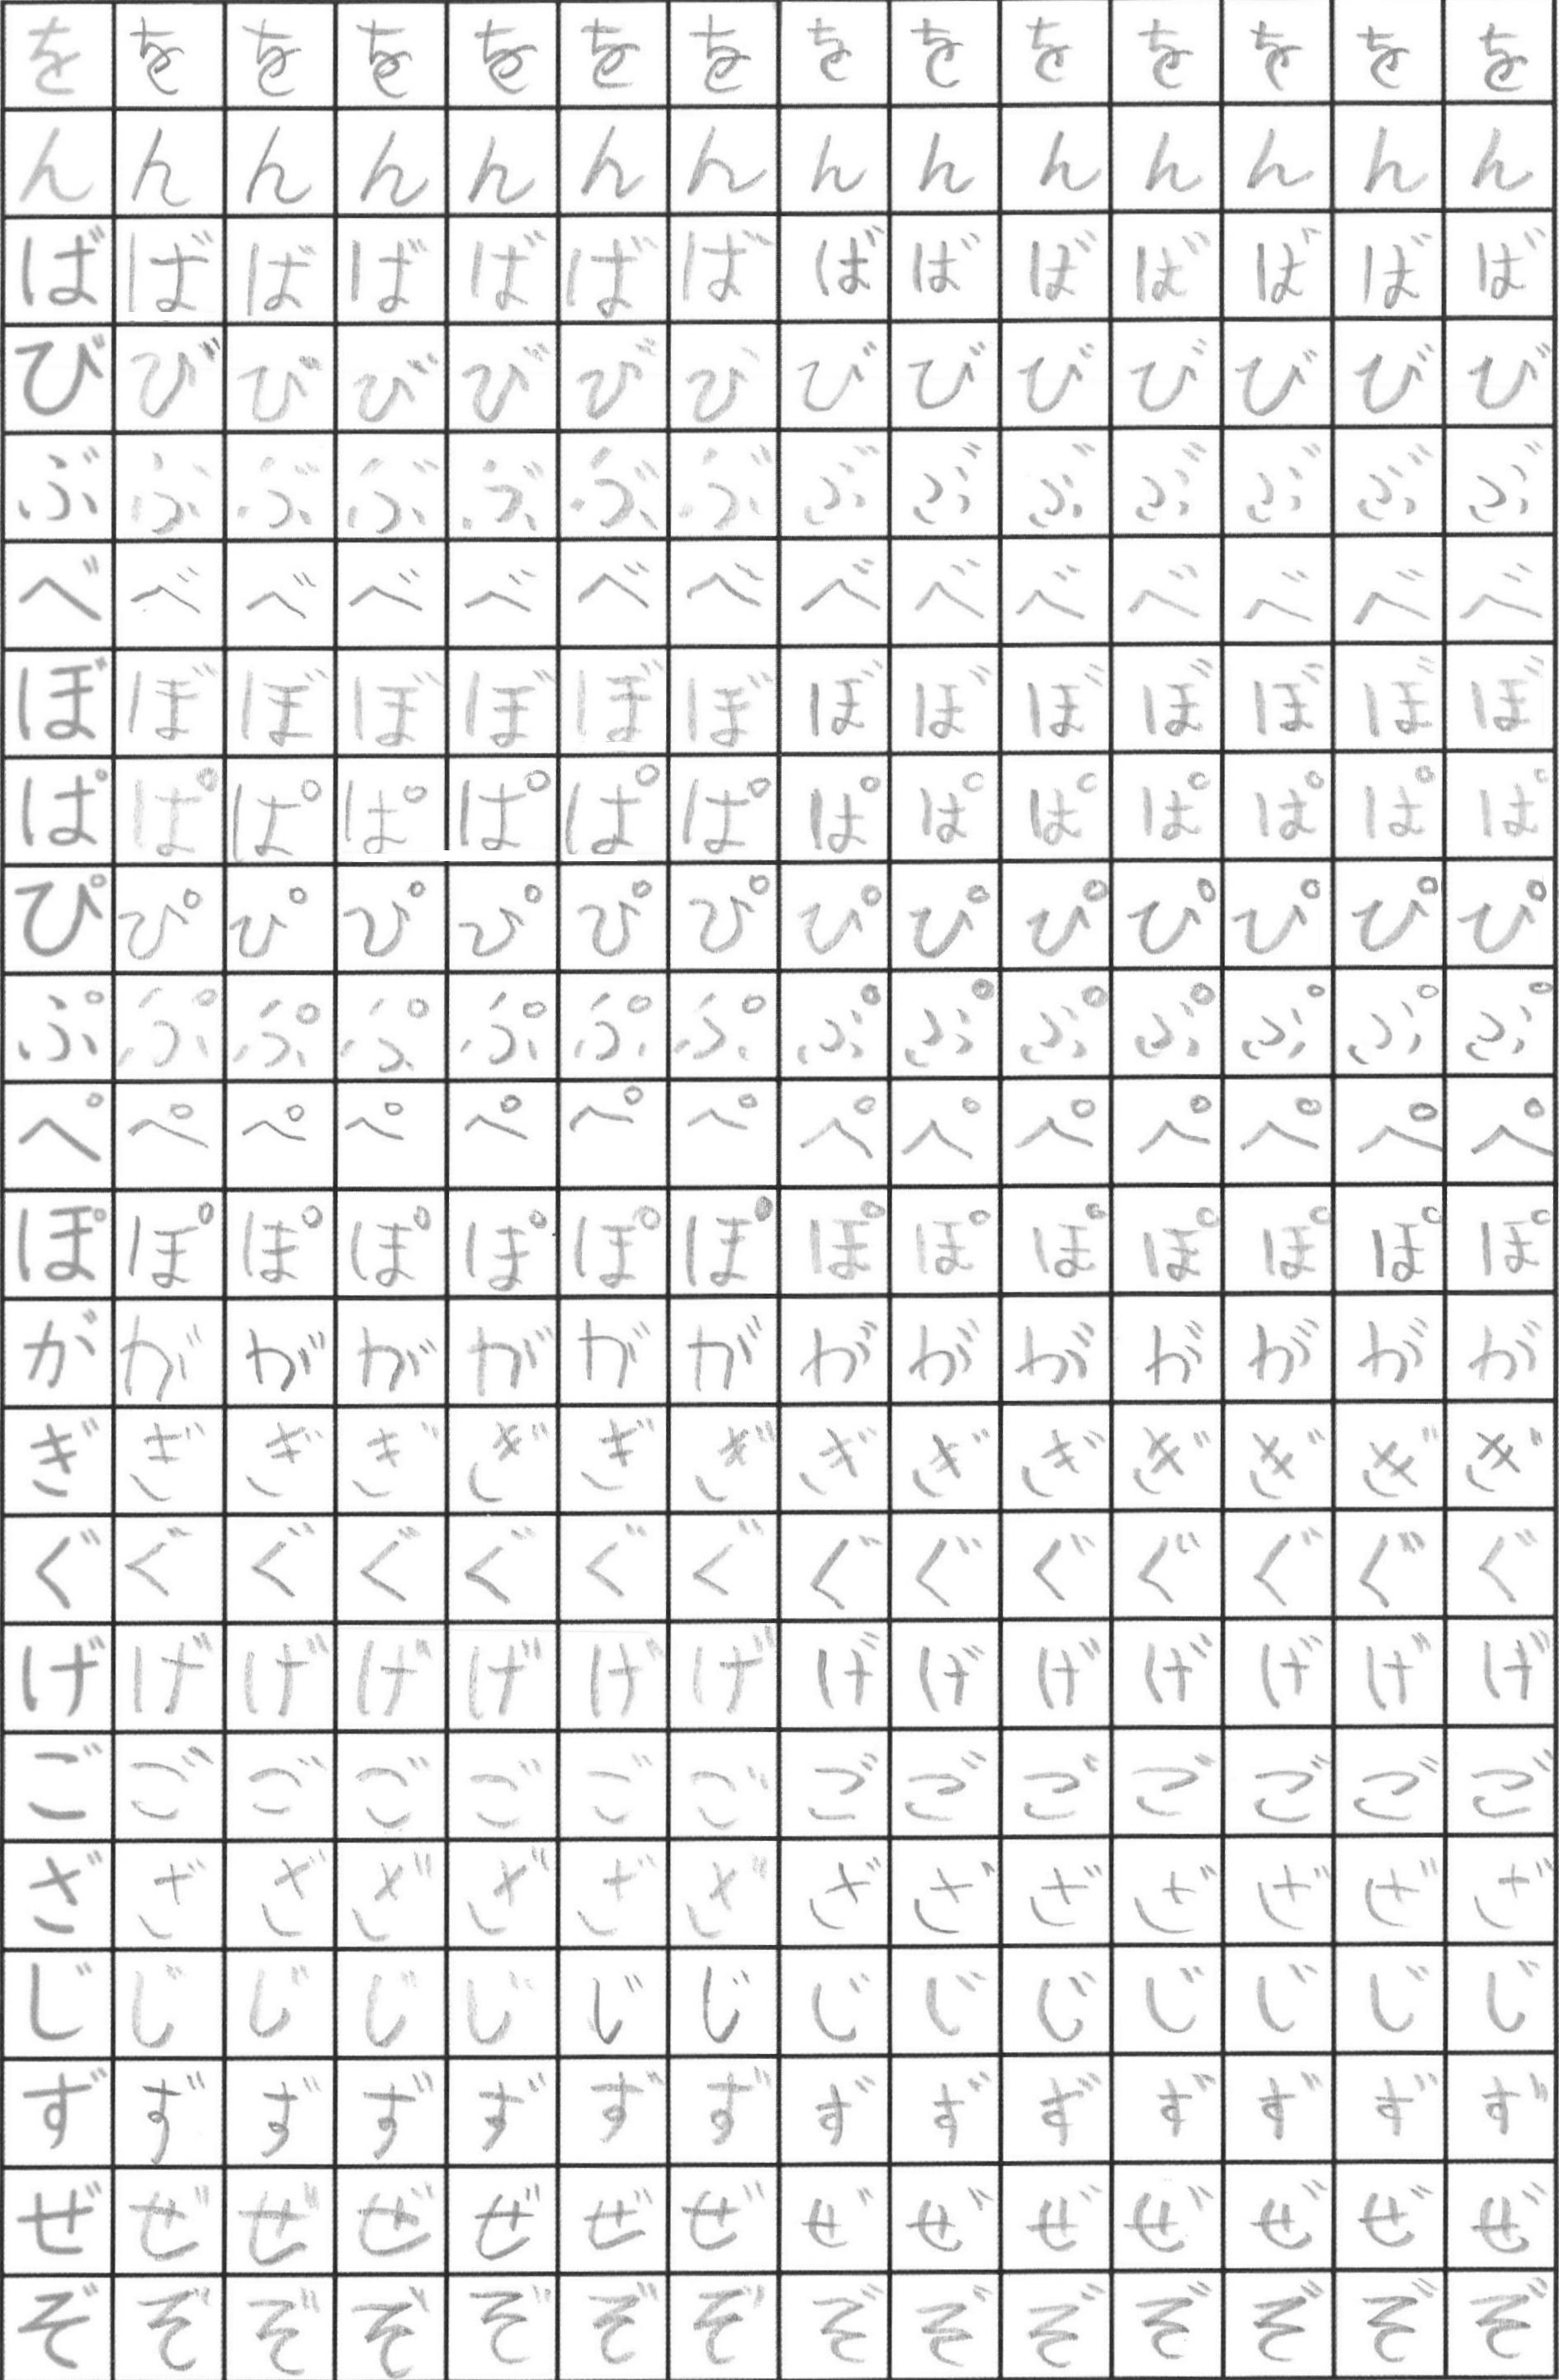 をををををををををををををを
んんんんんんんんんんんんんん
ばばばばばばばばばばばばばば
びびびびびびびびびびびびびび
ぶぶぶぶぶぶぶぶぶぶぶぶぶぶ
べべべべべべべべべべべべべべ
ぼぼぼぼぼぼぼぼぼぼぼぼぼぼ
ぱぱぱぱぱぱぱぱぱぱぱぱぱぱ
ぴぴぴぴぴぴぴぴぴぴぴぴぴぴ
ぷぷぷぷぷぷぷぷぷぷぷぷぷぷ
ぺぺぺぺぺぺぺぺぺぺぺぺぺぺ
ぽぽぽぽぽぽぽぽぽぽぽぽぽぽ
がががががががががががががが
ぎぎぎぎぎぎぎぎぎぎぎぎぎぎ
ぐぐぐぐぐぐぐぐぐぐぐぐぐぐ
げげげげげげげげげげげげげげ
ごごごごごごごごごごごごごご
ざざざざざざざざざざざざざざ
じじじじじじじじじじじじじじ
ずずずずずずずずずずずずずず
ぜぜぜぜぜぜぜぜぜぜぜぜぜぜ
ぞぞぞぞぞぞぞぞぞぞぞぞぞぞ